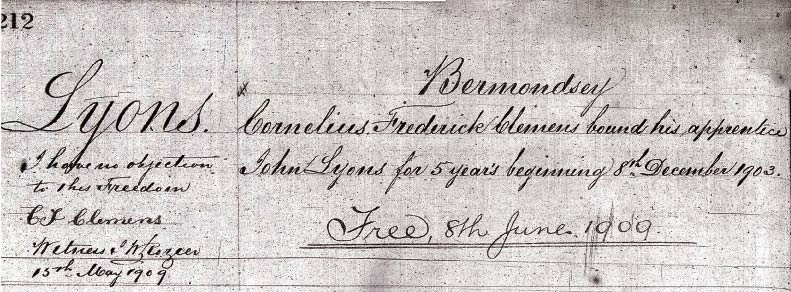 212
Lyons.
I have no objection
to this Freedom
C F Clemens
Witness
15th May 1909
Bermondsey
Cornelius Frederick Clemens bound his apprentice
John Lyons for 5 year's beginning 8th December 1903.
Free, 8th June 1909